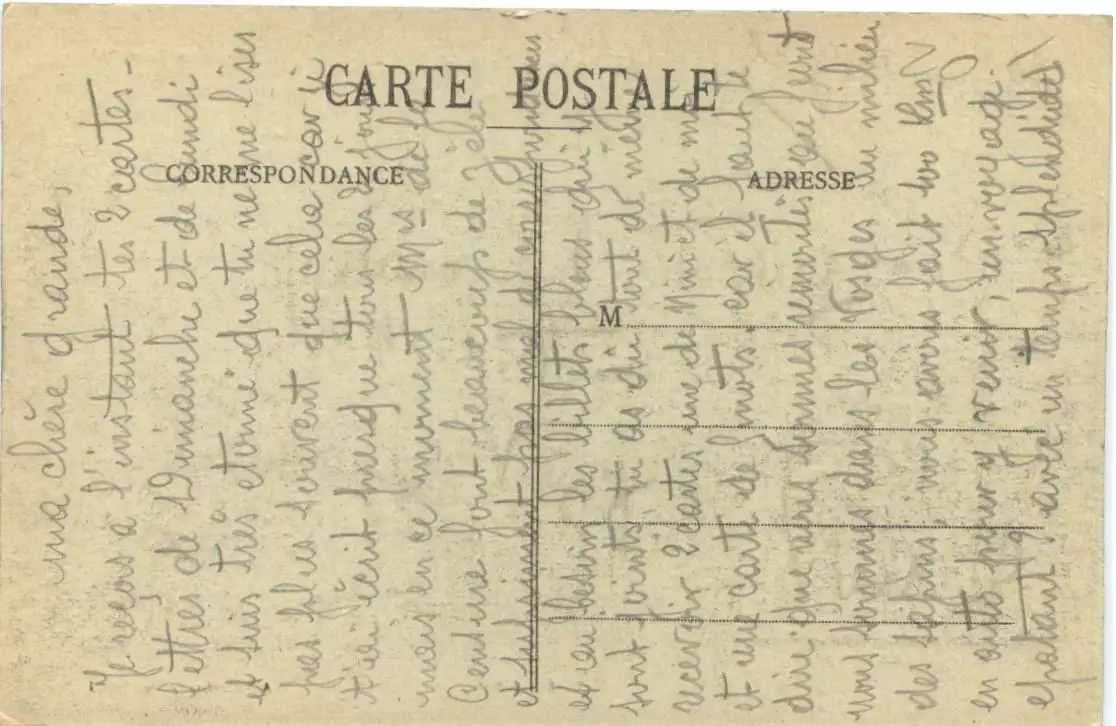 CARTE POSTALE
CORRESPONDANCE
ADRESSE
M
ma chère grande,
Je reçois à l'instant tes 2 cartes-
lettres de Dimanche et de Lundi
et suis très étonné que tu ne me lises
pas plus souvent que cela car je
t'ai écrit presque tous les jours
mais en ce moment Mrs de la
Censure font beaucoup de zèle
et suppriment pas mal de
et au besoin les billets bleus qui y
sont joints, tu as dû tout de même
recevoir 2 cartes une de Nini et de moi
et une carte de mots. car il faut te
dire que nous sommes remontés au
nous sommes dans les Vosges au milieu
des sapins, nous avons fait 100 km
en auto pour y venir, un voyage
épatant, avec un temps splendide!